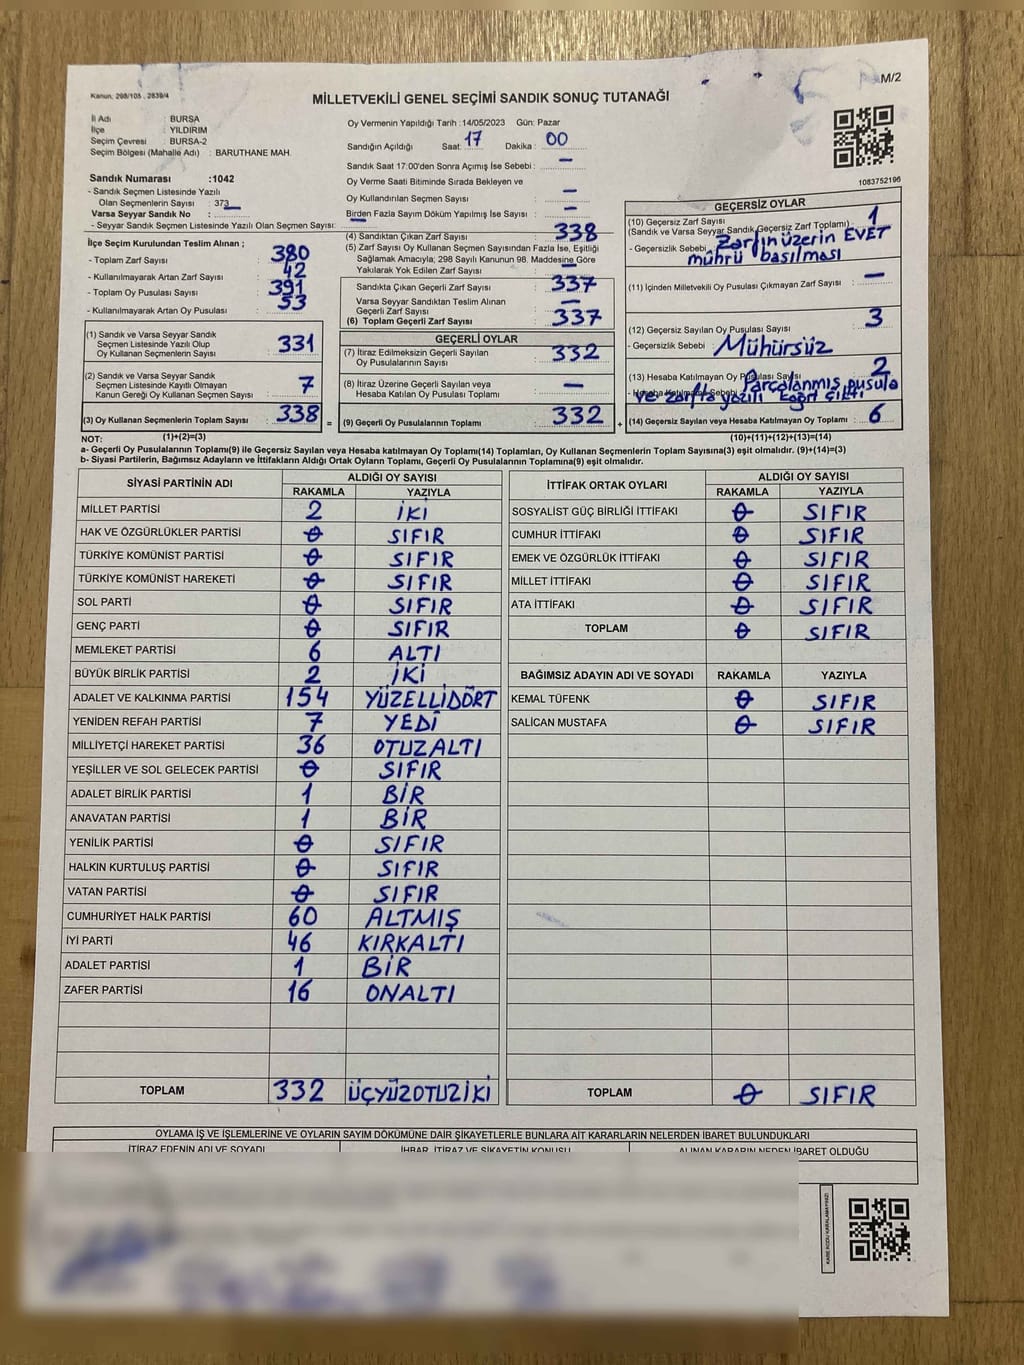 M/2
Kanun, 298/105 . 2839/4
MİLLETVEKİLİ GENEL SEÇİMİ SANDIK SONUÇ TUTANAĞI
İl Adı : BURSA
İlçe : YILDIRIM
Seçim Çevresi : BURSA-2
Seçim Bölgesi (Mahalle Adı) : BARUTHANE MAH.
Sandık Numarası :1042
- Sandık Seçmen Listesinde Yazılı
Olan Seçmenlerin Sayısı : 373
Varsa Seyyar Sandık No :
- Seyyar Sandık Seçmen Listesinde Yazılı Olan Seçmen Sayısı: —
Oy Vermenin Yapıldığı Tarih :14/05/2023 Gün: Pazar
Sandığın Açıldığı Saat: 17 Dakika : 00
Sandık Saat 17:00'den Sonra Açımış İse Sebebi : —
Oy Verme Saati Bitiminde Sırada Bekleyen ve
Oy Kullandırılan Seçmen Sayısı : —
Birden Fazla Sayım Döküm Yapılmış İse Sayısı : —
1083752196
İlçe Seçim Kurulundan Teslim Alınan ;
- Toplam Zarf Sayısı : 380
- Kullanılmayarak Artan Zarf Sayısı : 42
- Toplam Oy Pusulası Sayısı : 391
- Kullanılmayarak Artan Oy Pusulası : 53
(1) Sandık ve Varsa Seyyar Sandık
Seçmen Listesinde Yazılı Olup
Oy Kullanan Seçmenlerin Sayısı : 331
(2) Sandık ve Varsa Seyyar Sandık
Seçmen Listesinde Kayıtlı Olmayan
Kanun Gereği Oy Kullanan Seçmen Sayısı : 7
(3) Oy Kullanan Seçmenlerin Toplam Sayısı : 338
(4) Sandıktan Çıkan Zarf Sayısı : 338
(5) Zarf Sayısı Oy Kullanan Seçmen Sayısından Fazla İse, Eşitliği
Sağlamak Amacıyla; 298 Sayılı Kanunun 98. Maddesine Göre
Yakılarak Yok Edilen Zarf Sayısı : —
Sandıkta Çıkan Geçerli Zarf Sayısı : 337
Varsa Seyyar Sandıktan Teslim Alınan
Geçerli Zarf Sayısı : —
(6) Toplam Geçerli Zarf Sayısı : 337
GEÇERLİ OYLAR
(7) İtiraz Edilmeksizin Geçerli Sayılan
Oy Pusulalarının Sayısı : 332
(8) İtiraz Üzerine Geçerli Sayılan veya
Hesaba Katılan Oy Pusulası Toplamı : —
= (9) Geçerli Oy Pusulalarının Toplamı : 332
GEÇERSİZ OYLAR
(10) Geçersiz Zarf Sayısı
(Sandık ve Varsa Seyyar Sandık Geçersiz Zarf Toplamı) : 1
- Geçersizlik Sebebi : Zarfın üzerin EVET
mührü basılması
(11) İçinden Milletvekili Oy Pusulası Çıkmayan Zarf Sayısı : —
(12) Geçersiz Sayılan Oy Pusulası Sayısı : 3
- Geçersizlik Sebebi : Mühürsüz
(13) Hesaba Katılmayan Oy Pusulası Sayısı : 2
- Hesaba Katılmama Sebebi : Parçalanmış pusula
ve zarfta yazılı kağıt çıktı
+ (14) Geçersiz Sayılan veya Hesaba Katılmayan Oy Toplamı : 6
NOT: (1)+(2)=(3) (10)+(11)+(12)+(13)=(14)
a- Geçerli Oy Pusulasının Toplamı(9) ile Geçersiz Sayılan veya Hesaba katılmayan Oy Toplamı(14) Toplamları, Oy Kullanan Seçmenlerin Toplam Sayısına(3) eşit olmalıdır. (9)+(14)=(3)
b- Siyasi Partilerin, Bağımsız Adayların ve İttifakların Aldığı Ortak Oyların Toplamı, Geçerli Oy Pusulalarının Toplamına(9) eşit olmalıdır.
SİYASİ PARTİNİN ADI ALDIĞI OY SAYISI
RAKAMLA YAZIYLA
MİLLET PARTİSİ 2 İKİ
HAK VE ÖZGÜRLÜKLER PARTİSİ 0 SIFIR
TÜRKİYE KOMÜNİST PARTİSİ 0 SIFIR
TÜRKİYE KOMÜNİST HAREKETİ 0 SIFIR
SOL PARTİ 0 SIFIR
GENÇ PARTİ 0 SIFIR
MEMLEKET PARTİSİ 6 ALTI
BÜYÜK BİRLİK PARTİSİ 2 İKİ
ADALET VE KALKINMA PARTİSİ 154 YÜZELLİDÖRT
YENİDEN REFAH PARTİSİ 7 YEDİ
MİLLİYETÇİ HAREKET PARTİSİ 36 OTUZALTI
YEŞİLLER VE SOL GELECEK PARTİSİ 0 SIFIR
ADALET BİRLİK PARTİSİ 1 BİR
ANAVATAN PARTİSİ 1 BİR
YENİLİK PARTİSİ 0 SIFIR
HALKIN KURTULUŞ PARTİSİ 0 SIFIR
VATAN PARTİSİ 0 SIFIR
CUMHURİYET HALK PARTİSİ 60 ALTMIŞ
İYİ PARTİ 46 KIRKALTI
ADALET PARTİSİ 1 BİR
ZAFER PARTİSİ 16 ONALTI
TOPLAM 332 ÜÇYÜZOTUZİKİ
İTTİFAK ORTAK OYLARI ALDIĞI OY SAYISI
RAKAMLA YAZIYLA
SOSYALİST GÜÇ BİRLİĞİ İTTİFAKI 0 SIFIR
CUMHUR İTTİFAKI 0 SIFIR
EMEK VE ÖZGÜRLÜK İTTİFAKI 0 SIFIR
MİLLET İTTİFAKI 0 SIFIR
ATA İTTİFAKI 0 SIFIR
TOPLAM 0 SIFIR
BAĞIMSIZ ADAYIN ADI VE SOYADI RAKAMLA YAZIYLA
KEMAL TÜFENK 0 SIFIR
SALİCAN MUSTAFA 0 SIFIR
TOPLAM 0 SIFIR
OYLAMA İŞ VE İŞLEMLERİNE VE OYLARIN SAYIM DÖKÜMÜNE DAİR ŞİKAYETLERLE BUNLARA AİT KARARLARIN NELERDEN İBARET BULUNDUKLARI
İTİRAZ EDENİN ADI VE SOYADI İHBAR, İTİRAZ VE ŞİKAYETİN KONUSU ALINAN KARARIN NEDEN İBARET OLDUĞU
KARE KODU KARALAMAYINIZ!